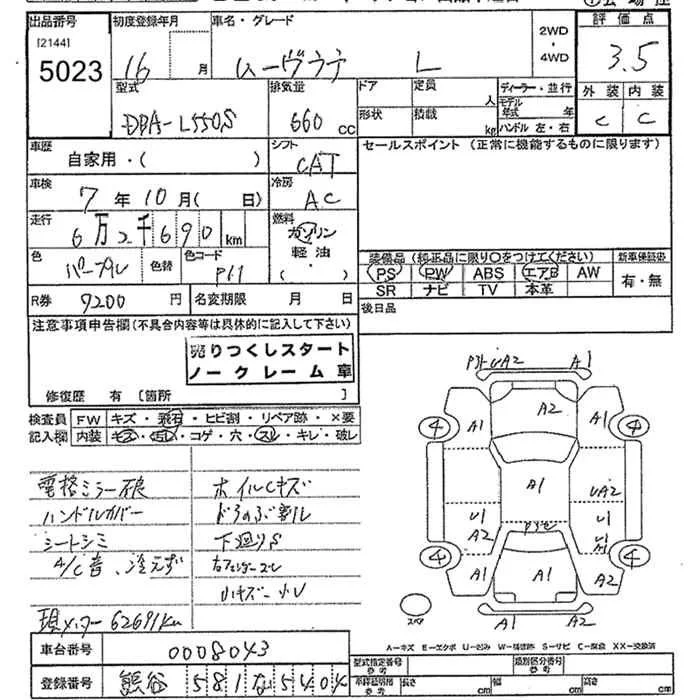 出品番号 初度登録年月 車名・グレード 2WD・4WD 評価点
[2144]
5023 16 月 ムーヴラテ L 3.5
型式 排気量 ドア 定員 人 ディーラー・並行 外装 内装
DBA-L550S 660 CC 形状 積載 kg モデル年式 年 C C
ハンドル 左・右
車歴 自家用・( ) シフト CAT セールスポイント (正常に機能するものに限ります)
車検 7年10月( 日) 冷房 AC
走行 6万2千690km 燃料 ガソリン・軽油・( )
色 パープル 色替 色コード P11
装備品 (純正品に限り○をつけてください) 新車保証書
PS PW ABS エアB AW 有・無
SR ナビ TV 本革
R券 9200 円 名変期限 月 日 後日品
注意事項申告欄(不具合内容等は具体的に記入して下さい)
売りつくしスタート
ノークレーム車
修復歴 有 [箇所 ]
検査員 FW キズ・飛石・ヒビ割・リペア跡・×要
記入欄 内装 キズ・汚レ・コゲ・穴・スレ・キレ・破レ
電格ミラー不良 ホイルCキズ
ハンドルカバー ドろのぶ割れ
シートシミ 下廻りS
A/C音、冷えず 右フェンダーズレ
小キズ・小U
現メーター62691km
UA2 A1
A2
④ A1 A1 ④
A1 UA2
U1 U1
A2
④ A1 A1 ④
A1 A2
スペア
A-キズ E-エクボ U-凹み W-補修跡 S-サビ C-腐食 XX-交換済
車台番号 0008043
型式指定番号 参考 類別区分番号 参考
登録番号 熊谷 581な5404
車枠証明欄 参考 長さ cm 幅 cm 高さ cm